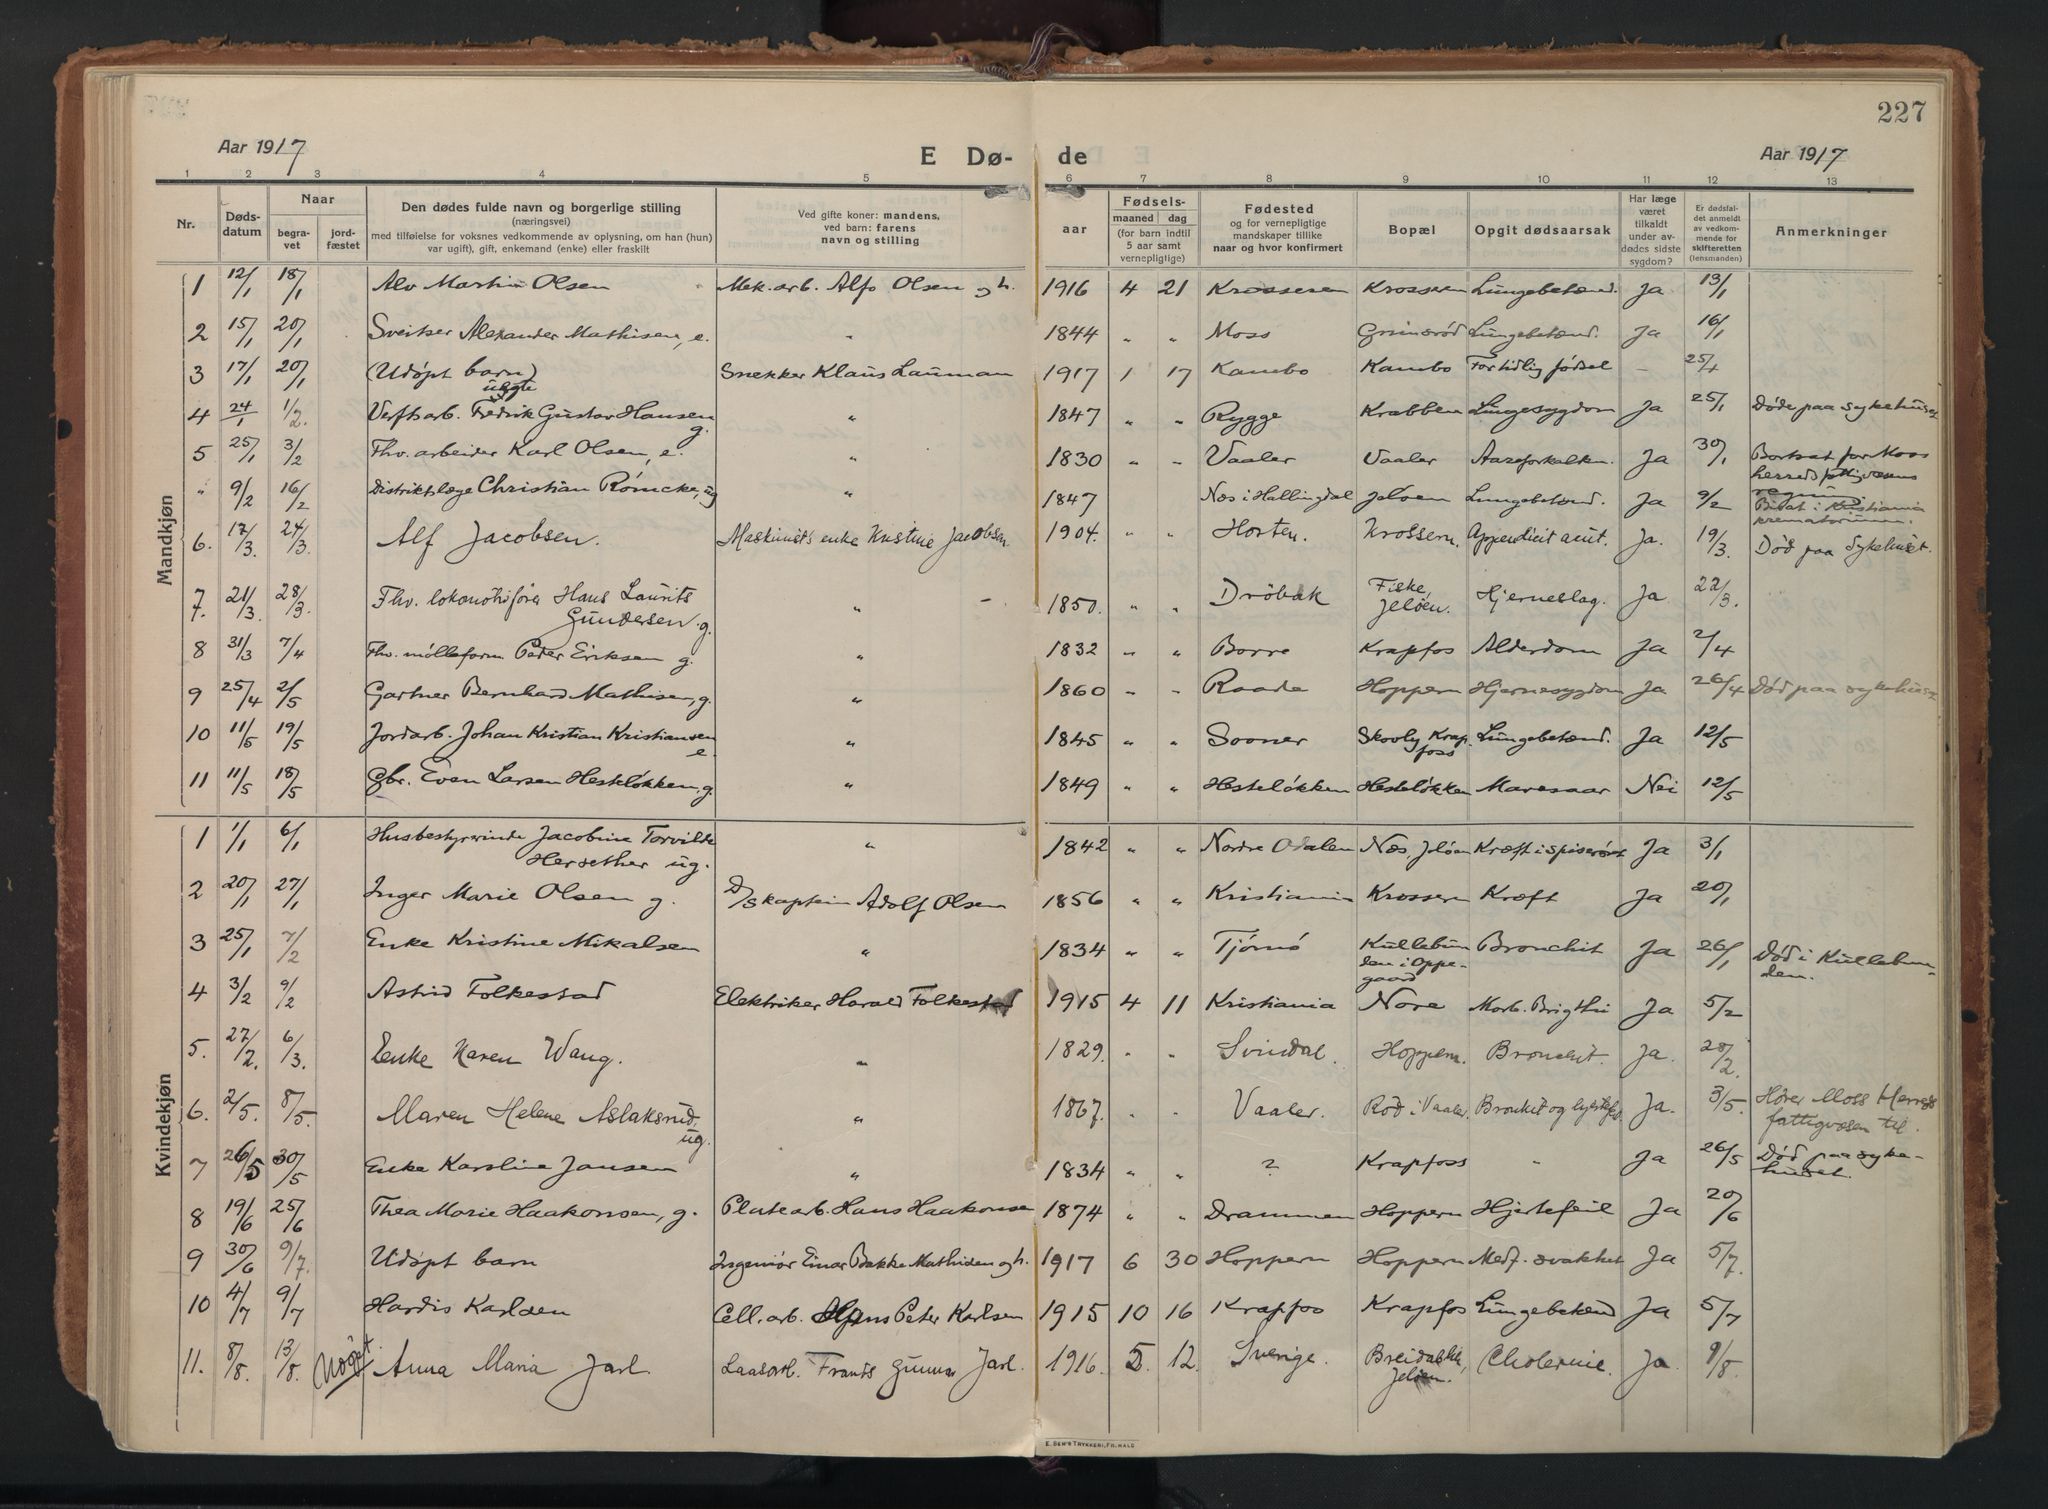 227
Aar 1917 E Dø- de Aar 1917
1 2 3 4 5 6 7 8 9 10 11 12 13
Nr. Døds-datum Naar begra-vet jord-fæstet Den dødes fulde navn og borgerlige stilling (næringsvei) med tilføielse for voksnes vedkommende av oplysning, om han (hun) var ugift), gift, enkemand (enke) eller fraskilt Ved gifte koner: mandens, ved barn: farens navn og stilling aar Fødsels- maaned dag (for barn indtil 5 aar samt vernepligtige) Fødested og for vernepligtige mandskaper tillike naar og hvor konfirmert Bopæl Opgit dødsaarsak Har læge været tilkaldt under av-dødes sidste sygdom? Er dødsfal-det anmeldt av vedkom-mende for skifteretten (lensmanden) Anmerkninger
Mandkjøn
1 12/1 18/1 Alv Martin Olsen Mek. arb. Alfo Olsen og h. 1916 4 21 Krosseren Krosseren Lungebetænd. Ja 13/1
2 15/1 20/1 Sveitser Alexander Mathisen, e. " 1844 " " Moss Grimsrød Lungebetænd. Ja 16/1
3 17/1 20/1 (Udøpt barn) Snekker Klaus Lauman 1917 1 17 Kambo Kambo For tidlig fødsel - 25/1
ugte
4 24/1 1/2 Verftsarb. Fredrik Gustav Hansen g. " 1847 " " Rygge Krabben Lungesygdom Ja 25/1 Døde paa sykehuset
5 25/1 3/2 Fhv. arbeider Karl Olsen, e. " 1830 " " Vaaler Vaaler Aareforkalken. Ja 30/1 Bortsat for Moss
herreds fattigvæsens
regning.
" 9/2 16/2 Distriktslæge Christian Römcke, ug " 1847 Næs i Hallingdal Jeløen Lungebetænd. Ja 9/2 Bisat i Kristiania
krematorium.
6. 17/3. 24/3. Alf Jacobsen. Maskinists enke Kristine Jacobsen 1904. " " Horten. Krossern. Appendicit acut. Ja. 19/3. Død paa Sykehuset.
7. 21/3. 28/3. Fhv. lokomotivfører Hans Laurits
Gundersen. g. " 1850. " " Drøbak Fiske, Jeløen. Hjerneslag. Ja 22/3.
8 31/3 7/4 Fhv. mølleform. Peder Eriksen g. " 1832 " " Borre Krapfos Alderdom Ja 2/4
9 25/4 2/5 Gartner Bernhard Mathisen, g. " 1860 " " Raade Hoppern Hjernesygdom Ja 26/4 Død paa sykehuset
10 11/5 19/5 Jordarb. Johan Kristian Kristiansen e. " 1845 " " Sooner Skovly Krapfoss Lungebetænd. Ja 12/5
11 11/5 18/5 Gbr. Even Larsen Hesteløkken, g. " 1849 " " Hesteløkken Hesteløkken Mavesaar Nei 12/5
Kvindekjøn
1 1/1 6/1 Husbestyrerinde Jacobine Torvilde
Hersether ug. " 1842 " " Nordre Odalen Næs, Jeløen Kræft i spiserøret Ja 3/1
2 20/1 27/1 Inger Marie Olsen g. D/S kaptein Adolf Olsen 1856 " " Kristiania Krossern Kræft Ja 20/1
3 25/1 7/2 Enke Kristine Mikalsen " 1834 " " Tjømø Kullebunden i Oppegaard Bronchit Ja 26/1 Død i Kullebunden.
4 3/2 9/2 Astrid Folkestad Elektriker Harald Folkestad 1915 4 11 Kristiania Nore Morb. Brigthii Ja 5/2
5. 27/2. 6/3. Enke Karen Wang. " 1829. " " Svindal. Hoppern. Bronchit. Ja. 28/2.
6. 2/5. 8/5. Maren Helene Aslaksrud, ug. " 1867. " " Vaaler. Rød i Vaaler. Bronkit og hjertefeil. Ja. 3/5. Hører Moss Herreds
fattigvæsen til.
7 26/5 30/5 Enke Karoline Jansen " 1834 " " ? Krapfoss " Ja 26/5 Død paa sykehuset.
8 19/6 25/6 Thea Marie Haakonsen, g. Platearb. Hans Haakonsen 1874 " " Drammen Hoppern Hjertefeil Ja 20/6
9 30/6 9/7. Udøpt barn Ingeniør Einar Bakke Mathisen og h. 1917 6 30 Hoppern Hoppern Medf. svakhet Ja 5/7.
10 4/7 9/7 Hardis Karlsen Cell. arb. Hans Peter Karlsen 1915 10 16 Krapfos Krapfos Lungebetænd Ja 5/7
11. 8/8. 13/8. Anna Maria Jarl. Laasarb. Frants Gunnar Jarl. 1916. 5. 12. Sverige. Breidablik, Jeløen. Cholerine. Ja. 9/8.
E. SEM'S TRYKKERI, FR.HALD